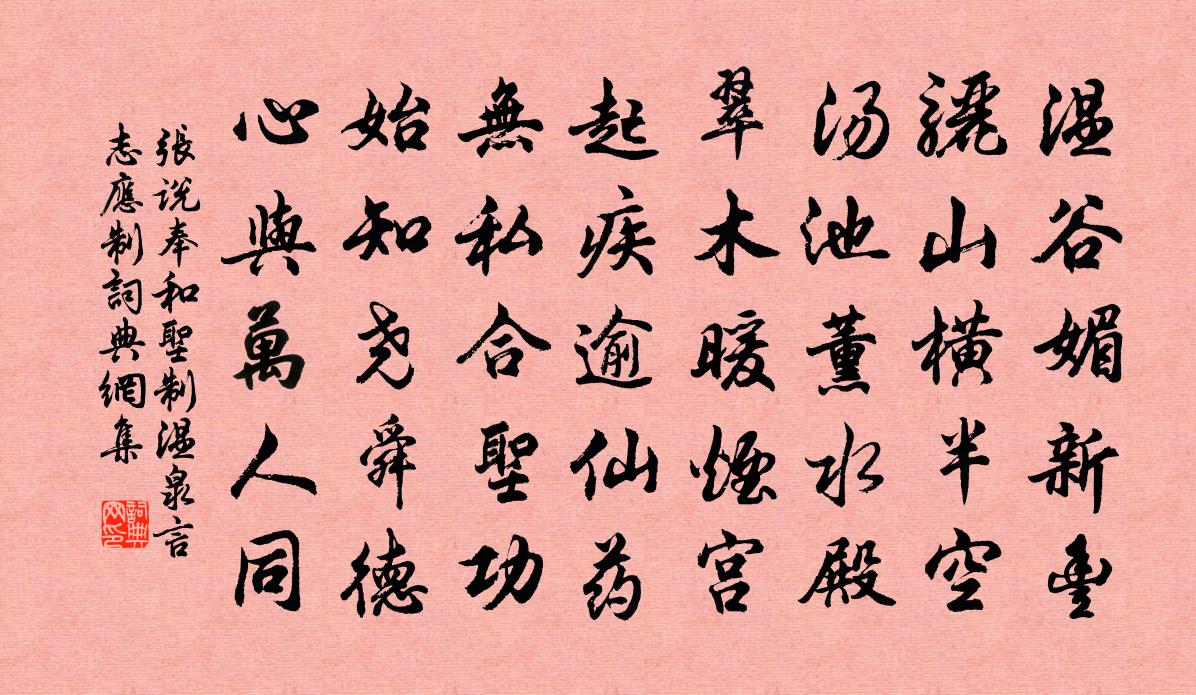 温谷媚新豐
驪山橫半空
湯池薰水殿
翠木暖煙宮
起疾逾仙药
無私合聖功
始知堯舜德
心與萬人同
張說奉和聖制温泉言
志應制詞典網集
詞典網印